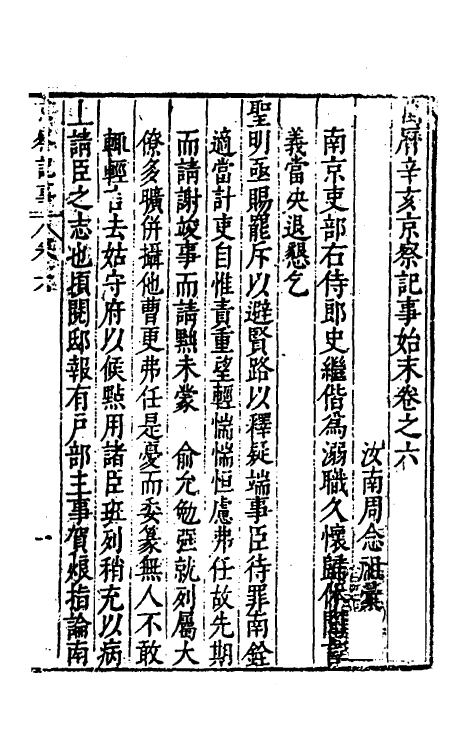 萬曆辛亥京察記事始末卷之六
汝南周念祖彙
南京吏部右侍郎史繼偕為溺職久懷歸休
義當央退懇乞
聖明亟賜罷斥以避賢路以釋疑端事臣待罪南銓
適當計吏自惟責重望輕惴惴恒慮弗任故先期
而請謝竣事而請黜未蒙　俞允勉强就列屬大
僚多曠併攝他曹更弗任是憂而委篆無人不敢
輒輕言去姑守府以候㸃用諸臣班列稍充以病
上請臣之志也頃閱邸報有戸部主事賀烺指論南
京察記事　卷六